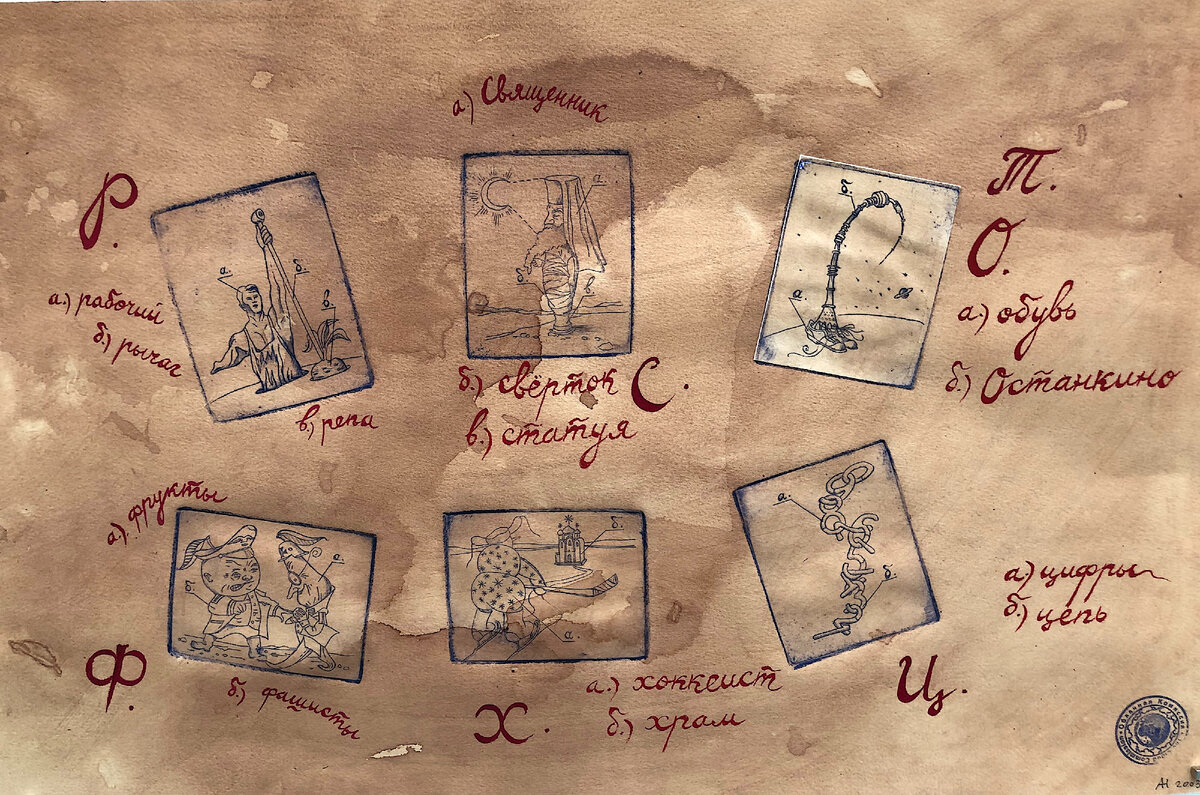 а) Священник
Р.
а.) рабочий
б.) рычаг
в.) репа
а.
б.
в.
а.
б.
в.
б.) свёрток
С.
в.) статуя
б.
а.
Т.
О.
а.) обувь
б.) Останкино
а.) фрукты
б.
а.
Ф.
б.) фашисты
б.
а.
Х.
а.) хоккеист
б.) храм
а.
б.
а) цифры
б.) цепь
Ц.
АН 2003